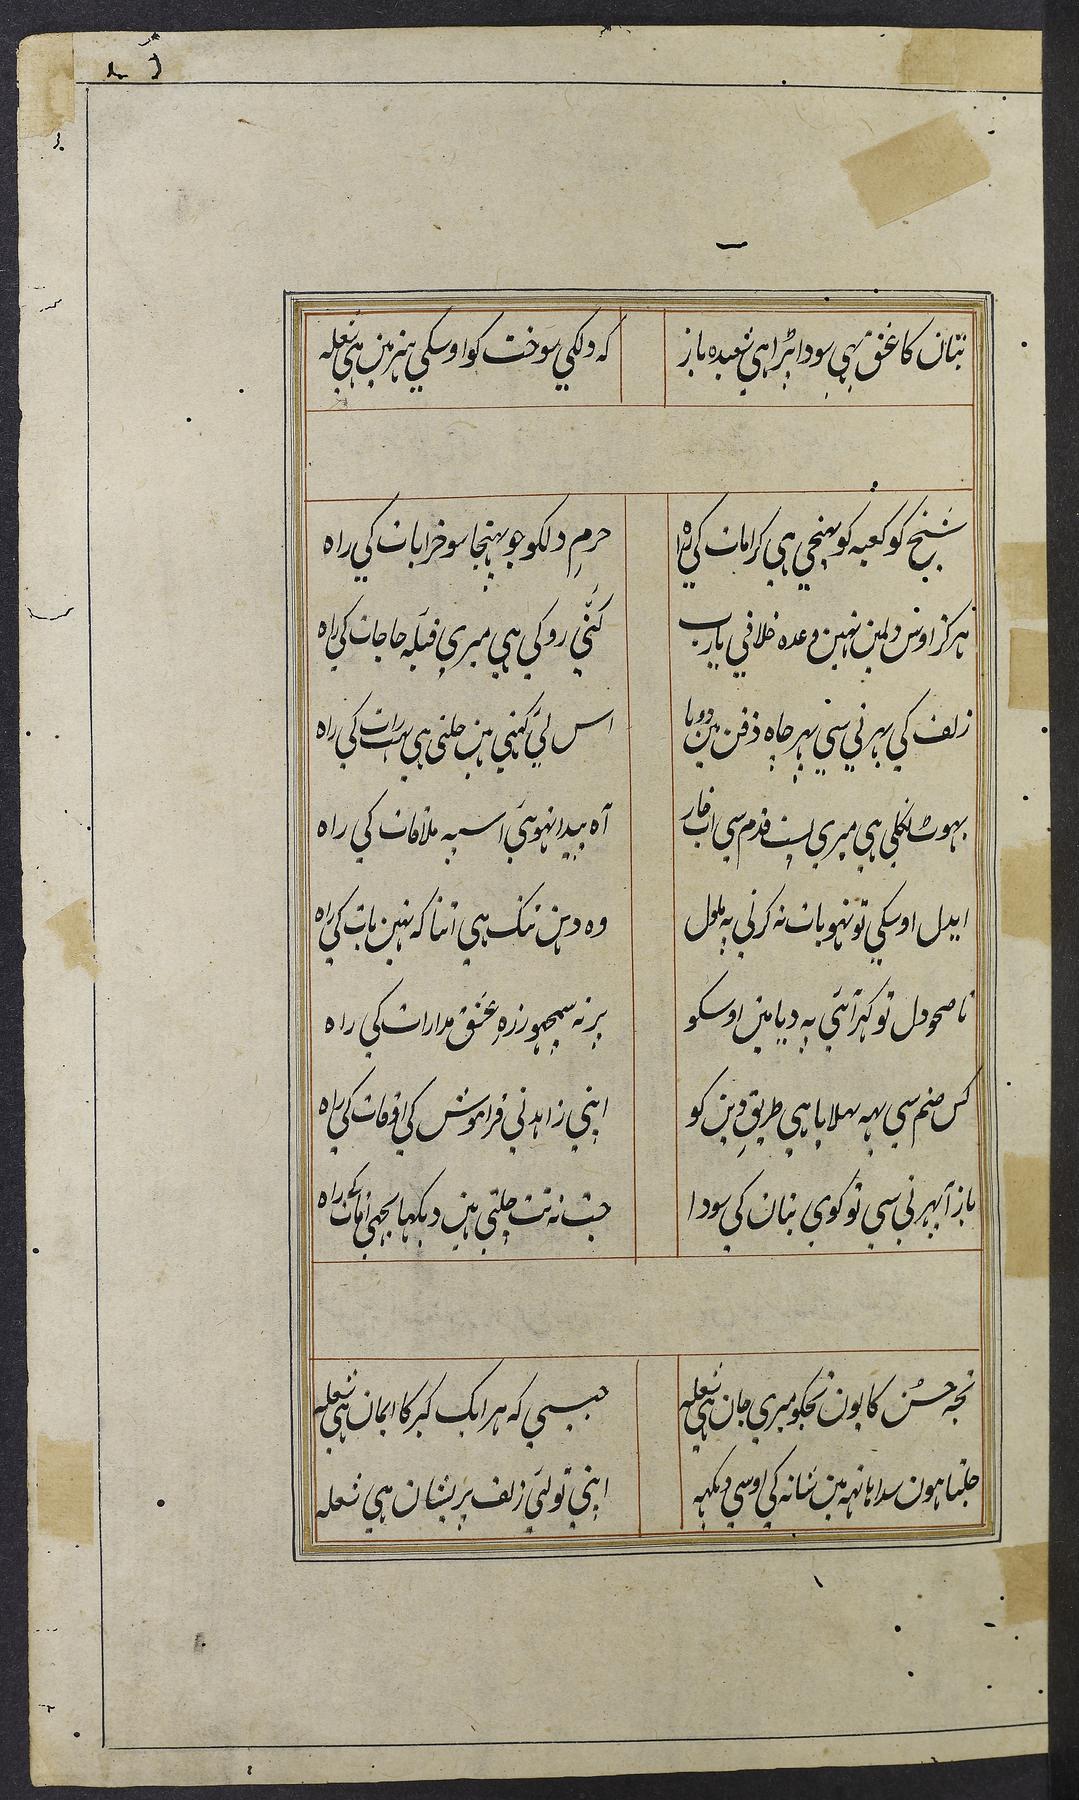 بتان کا عشق بہی سودا بڑا ہی شعبدہ باز
که دلکی سوخت کو اوسکی ہنر مین ہی شعله
شیخ کو کعبہ کو پہنچی ہی کرامات کی راہ
حرم دلکو جو پہنچا سو خرابات کی راہ
ہرکز اوس دلمین نہین وعدہ خلافی یارب
کنّی روکی ہی میری قبلہ حاجات کی راہ
زلف کی پہرنی سی پہر چاہ ذقن مین دوبا
اس لیٔ کہنی مین چلنی ہی بہت رات کی راہ
پہوٹ نکلی ہی میری پشت قدم سی اب خار
آہ پیدا نہوئی اسپہ ملاقات کی راہ
ایدل اوسکی تو نہو بات نہ کرنی پہ ملول
وہ دہن تنک ہی اتنا کہ نہین بات کی راہ
ناصحو دل تو کہر آتی پہ دیا مین اوسکو
پر نہ سمجہو زرہ عشق مدارات کی راہ
کس صنم سی یہہ بہلایا ہی طریق دین کو
اپنی زاہد نی فراموش کی اوقات کی راہ
باز آ پہرنی سی تو کوی بتان کی سودا
جب نہ تب چلتی ہین دیکہا تجہی آفات کی راہ
تجہ حسن کا یون تجکو میری جان ہی شعله
جیسی که ہر ایک کبر کا ایمان ہی شعله
جلتا ہون سدا ہاتہہ مین شانہ کی اوسی دیکہہ
اپنی تو لیٔ زلف پریشان ہی شعله